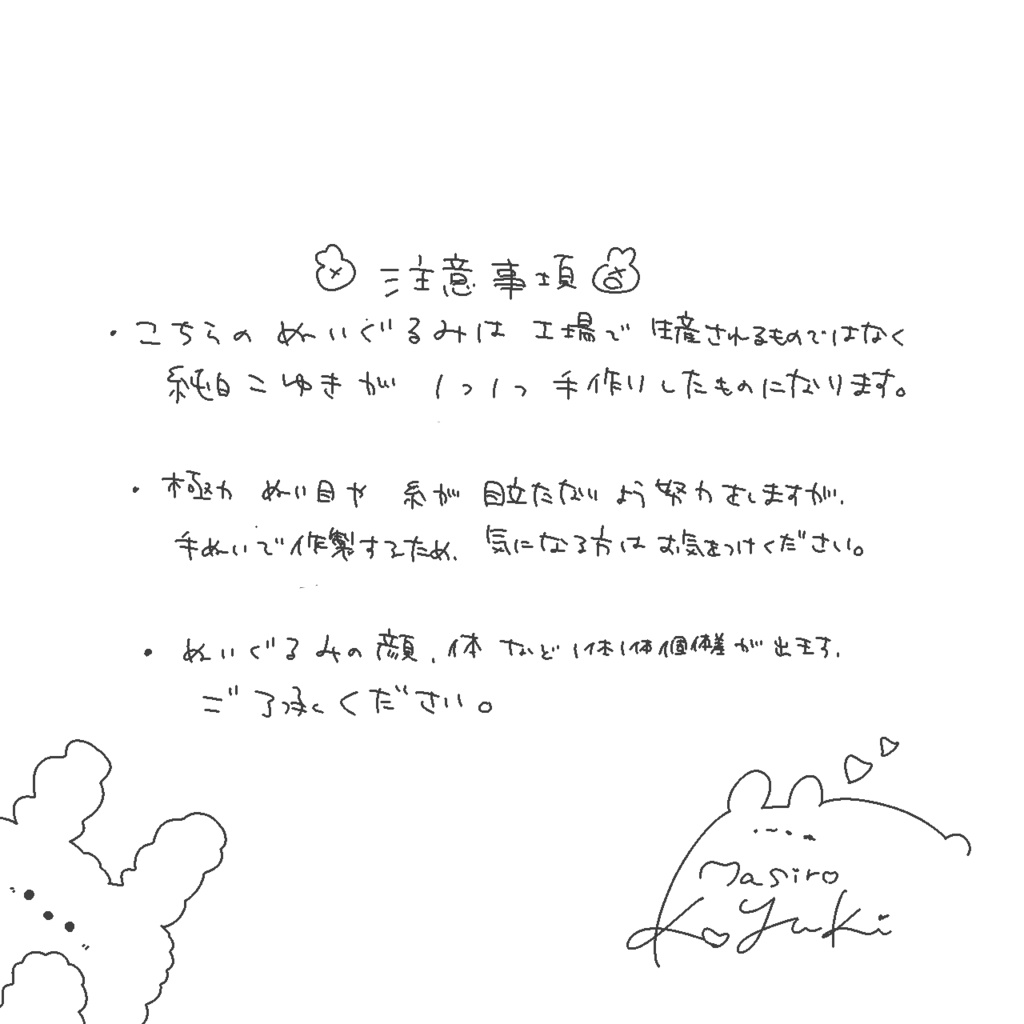 注意事項
・こちらの ぬいぐるみは 工場で 生産されるものではなく
純白こゆきが 1つ1つ 手作りしたものになります。
・極力 ぬい目や 糸が 目立たないよう努力をしますが、
手ぬいで作製するため、気になる方は お気をつけください。
・ぬいぐるみの顔、体 など 1体1体個体差が出ます、
ご了承ください。
Masiro
KoYuKi